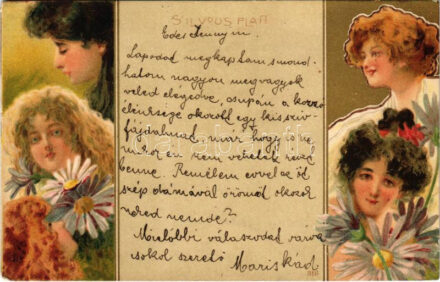 S'IL VOUS PLAIT
Édes Jennym.
Lapodat megkaptam mond-
hatom nagyon megvagyok
veled elégedve, csupán a korzó
élénksége okozott egy kis szív-
fájdalmat, már hogy is ne
mikor én nem vehetek részt
benne. Remélem evvel az öt
szép dámával örömöt okozok
neked nemde?
Mielőbbi válaszodat várva
csókol szerető Mariskád